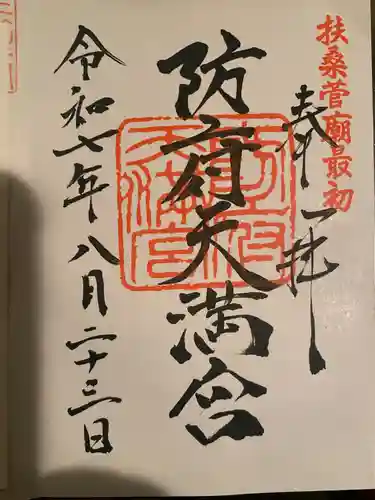 扶桑菅廟最初
奉拝
防府天満宮
防府
天満宮
令和七年八月二十三日